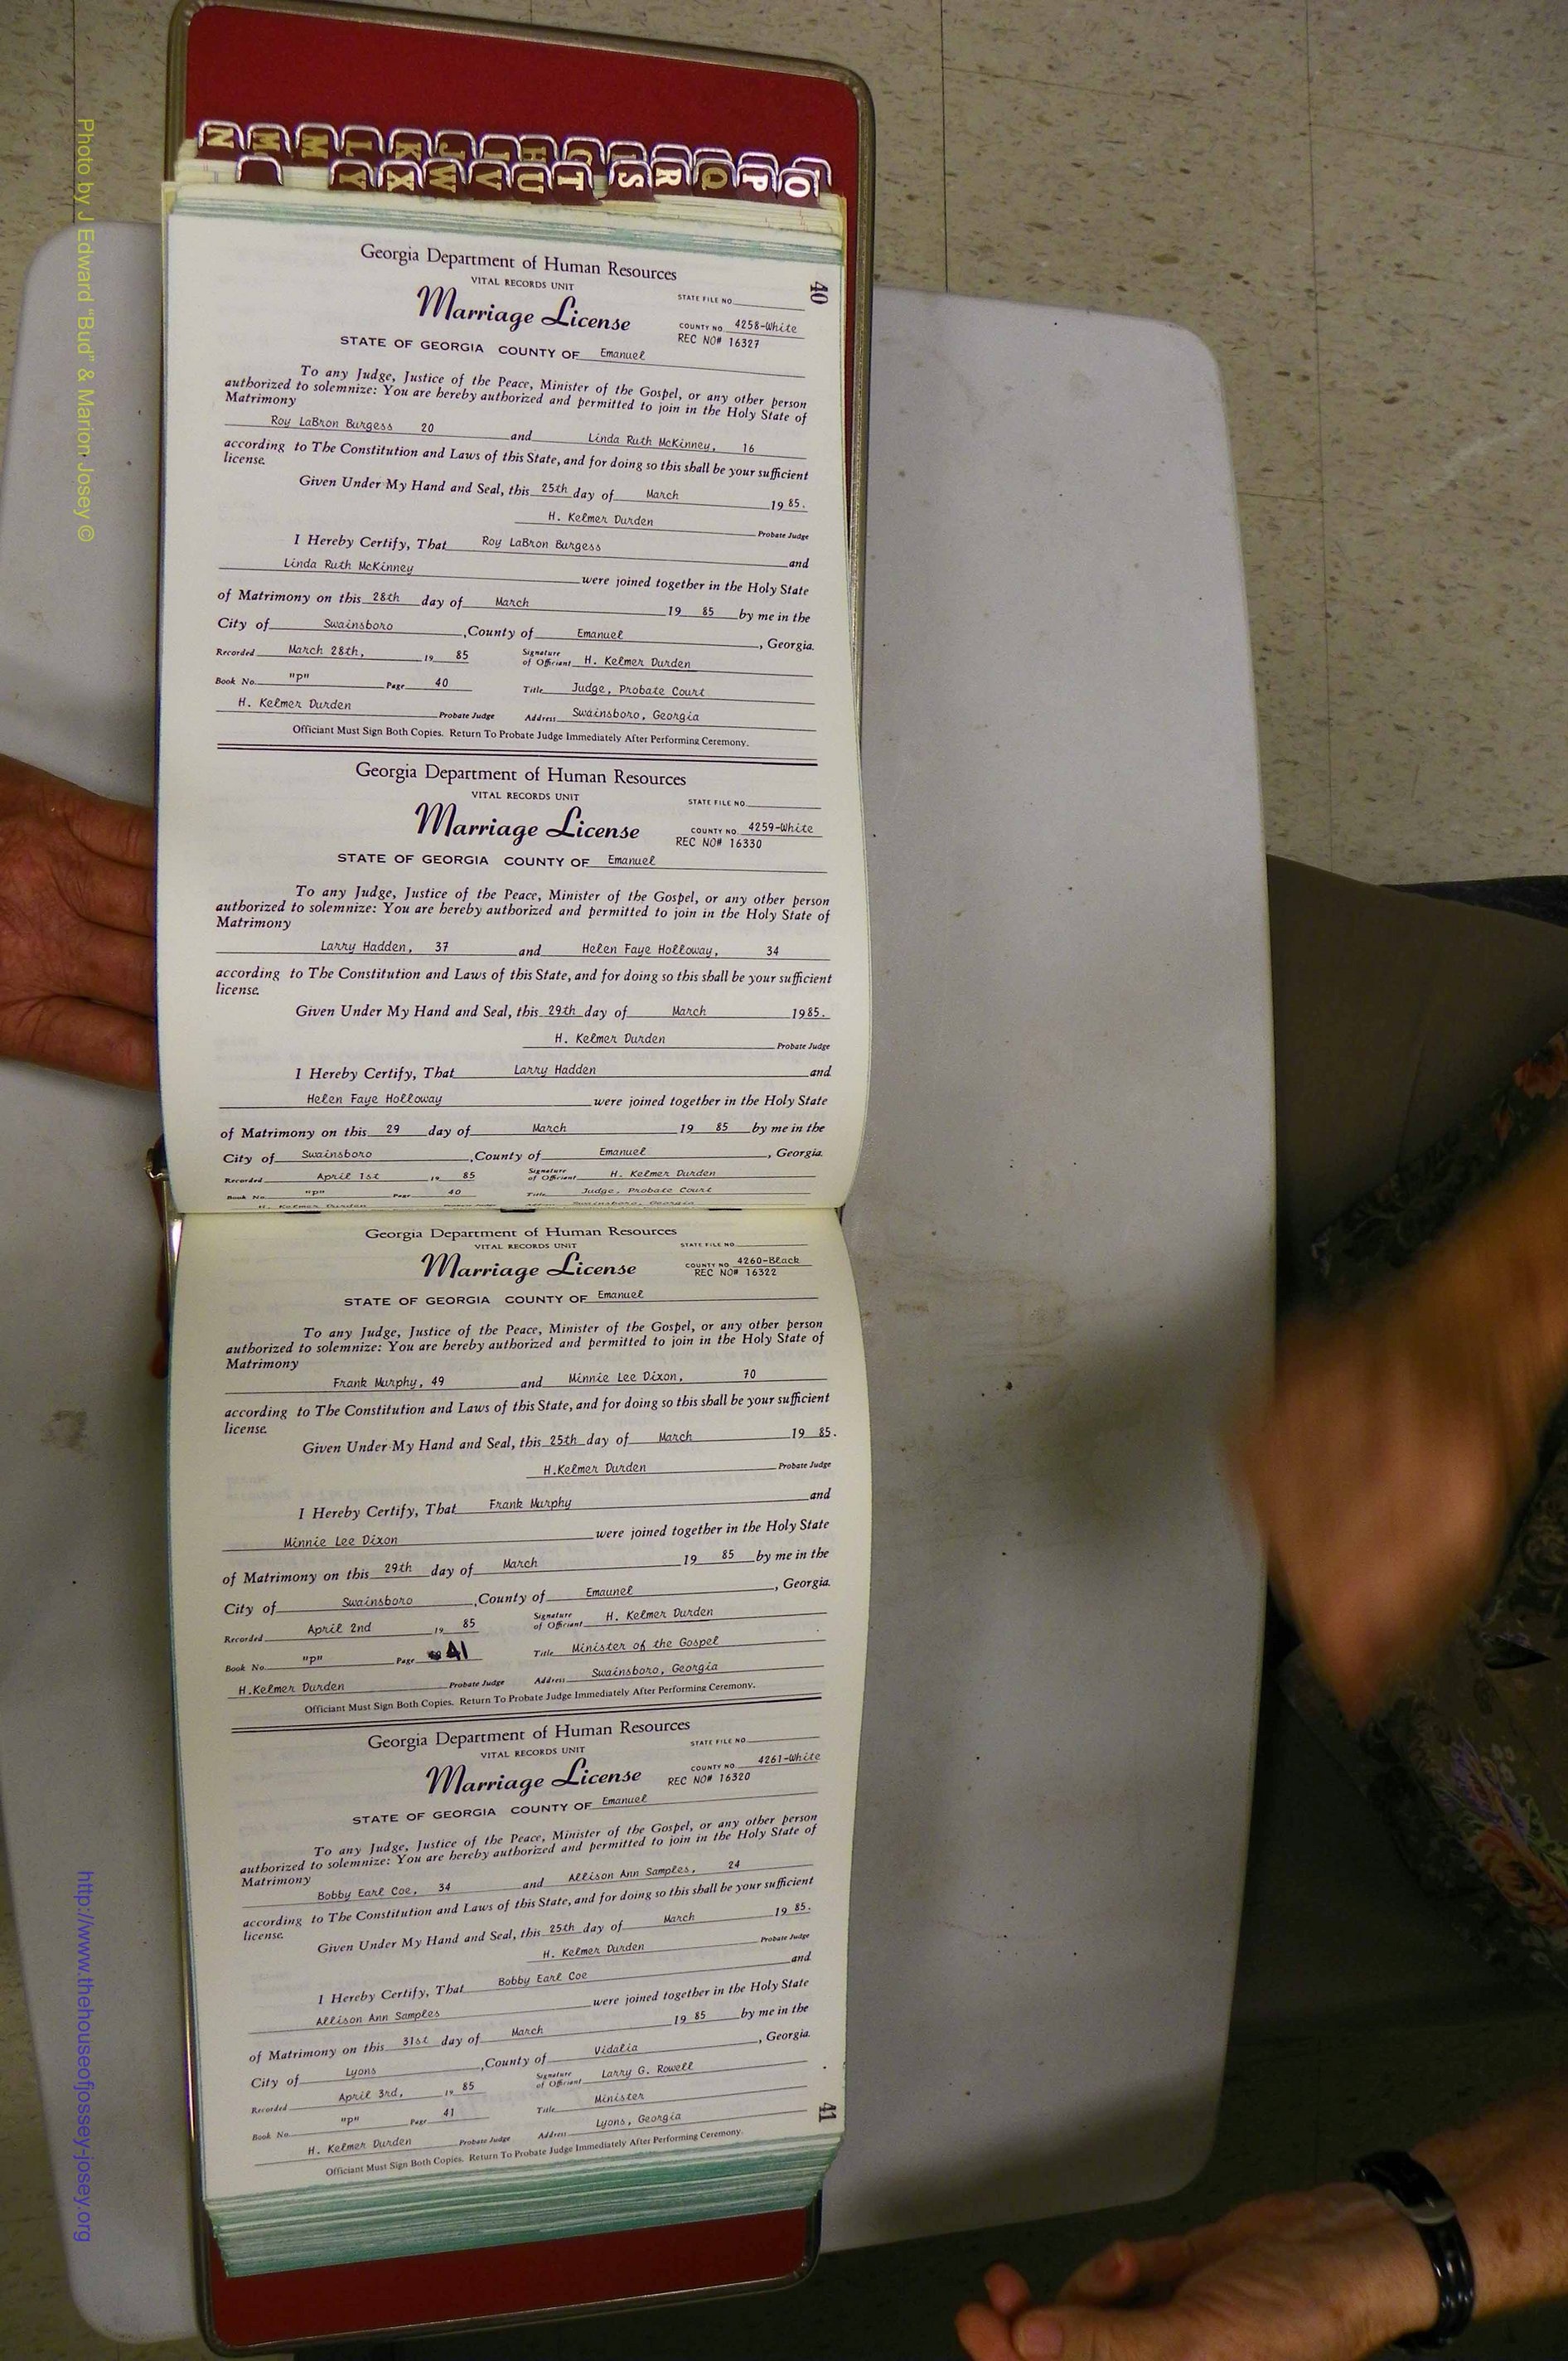 N M M L K J I H G R Q P O
Y X W V U T S
Photo by J Edward "Bud" & Marion Josey ©
http://www.thehouseofjossey-josey.org
40
Georgia Department of Human Resources
VITAL RECORDS UNIT
STATE FILE NO.
Marriage License
COUNTY NO. 4258-White
REC NO# 16327
STATE OF GEORGIA COUNTY OF Emanuel
To any Judge, Justice of the Peace, Minister of the Gospel, or any other person
authorized to solemnize: You are hereby authorized and permitted to join in the Holy State of
Matrimony
Roy LaBron Burgess 20 and Linda Ruth McKinney, 16
according to The Constitution and Laws of this State, and for doing so this shall be your sufficient
license.
Given Under My Hand and Seal, this 25th day of March 1985.
H. Kelmer Durden
Probate Judge
I Hereby Certify, That Roy LaBron Burgess and
Linda Ruth McKinney were joined together in the Holy State
of Matrimony on this 28th day of March 19 85 by me in the
City of Swainsboro, County of Emanuel, Georgia.
Recorded March 28th, 19 85 Signature of Officiant H. Kelmer Durden
Book No. "P" Page 40 Title Judge, Probate Court
H. Kelmer Durden Probate Judge Address Swainsboro, Georgia
Officiant Must Sign Both Copies. Return To Probate Judge Immediately After Performing Ceremony.
Georgia Department of Human Resources
VITAL RECORDS UNIT
STATE FILE NO.
Marriage License
COUNTY NO. 4259-White
REC NO# 16330
STATE OF GEORGIA COUNTY OF Emanuel
To any Judge, Justice of the Peace, Minister of the Gospel, or any other person
authorized to solemnize: You are hereby authorized and permitted to join in the Holy State of
Matrimony
Larry Hadden, 37 and Helen Faye Holloway, 34
according to The Constitution and Laws of this State, and for doing so this shall be your sufficient
license.
Given Under My Hand and Seal, this 29th day of March 1985.
H. Kelmer Durden
Probate Judge
I Hereby Certify, That Larry Hadden and
Helen Faye Holloway were joined together in the Holy State
of Matrimony on this 29 day of March 19 85 by me in the
City of Swainsboro, County of Emanuel, Georgia.
Recorded April 1st 19 85 Signature of Officiant H. Kelmer Durden
Book No. "P" Page 40 Title Judge, Probate Court
H. Kelmer Durden Swainsboro, Georgia
Georgia Department of Human Resources
VITAL RECORDS UNIT
STATE FILE NO.
Marriage License
COUNTY NO. 4260-Black
REC NO# 16322
STATE OF GEORGIA COUNTY OF Emanuel
To any Judge, Justice of the Peace, Minister of the Gospel, or any other person
authorized to solemnize: You are hereby authorized and permitted to join in the Holy State of
Matrimony
Frank Murphy, 49 and Minnie Lee Dixon, 70
according to The Constitution and Laws of this State, and for doing so this shall be your sufficient
license.
Given Under My Hand and Seal, this 25th day of March 19 85.
H.Kelmer Durden
Probate Judge
I Hereby Certify, That Frank Murphy and
Minnie Lee Dixon were joined together in the Holy State
of Matrimony on this 29th day of March 19 85 by me in the
City of Swainsboro, County of Emaunel, Georgia.
Recorded April 2nd 19 85 Signature of Officiant H. Kelmer Durden
Book No. "P" Page 41 Title Minister of the Gospel
H.Kelmer Durden Probate Judge Address Swainsboro, Georgia
Officiant Must Sign Both Copies. Return To Probate Judge Immediately After Performing Ceremony.
Georgia Department of Human Resources
VITAL RECORDS UNIT
STATE FILE NO.
Marriage License
COUNTY NO. 4261-White
REC NO# 16320
STATE OF GEORGIA COUNTY OF Emanuel
To any Judge, Justice of the Peace, Minister of the Gospel, or any other person
authorized to solemnize: You are hereby authorized and permitted to join in the Holy State of
Matrimony
Bobby Earl Coe, 34 and Allison Ann Samples, 24
according to The Constitution and Laws of this State, and for doing so this shall be your sufficient
license.
Given Under My Hand and Seal, this 25th day of March 19 85.
H. Kelmer Durden
Probate Judge
I Hereby Certify, That Bobby Earl Coe and
Allison Ann Samples were joined together in the Holy State
of Matrimony on this 31st day of March 19 85 by me in the
City of Lyons, County of Vidalia, Georgia.
Recorded April 3rd, 19 85 Signature of Officiant Larry G. Rowell
Book No. "P" Page 41 Title Minister
H. Kelmer Durden Probate Judge Address Lyons, Georgia
Officiant Must Sign Both Copies. Return To Probate Judge Immediately After Performing Ceremony.
41